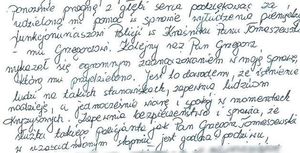 Ponownie pragnę z głębi serca podziękować za
udzieloną mi pomoc w sprawie wyłudzenia pieniędzy
funkcjonariuszowi Policji w Kraśniku Panu Tomaszewski
- mu Grzegorzowi. Kolejny raz Pan Grzegorz
wykazał się ogromnym zaangażowaniem w moją sprawę,
którą mu przydzielono. Jest to dowodem, że istnienie
ludzi na takich stanowiskach, zapewnia ludziom
nadzieję, a jednocześnie wiarę i spokój w momentach
kryzysowych. Zapewnia bezpieczeństwo i sprawia, że
służba takiego policjanta jak Pan Grzegorz Tomaszewski
w stopniu jest godna podziwu.